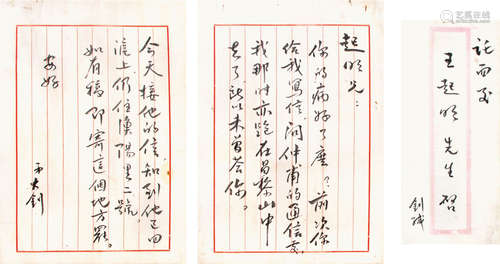 託面交
王起明先生啟
釗緘
起明兄：
你的病好了麼？前次你
給我寫信，问仲甫的通信處
我那时亦跑在昌黎山中
去了，所以未曾答你。
今天接他的信，知到他已回
滬上，仍住漁陽里二號，
如有稿，即寄這個地方罷。
安好
弟大釗
艺狐在线